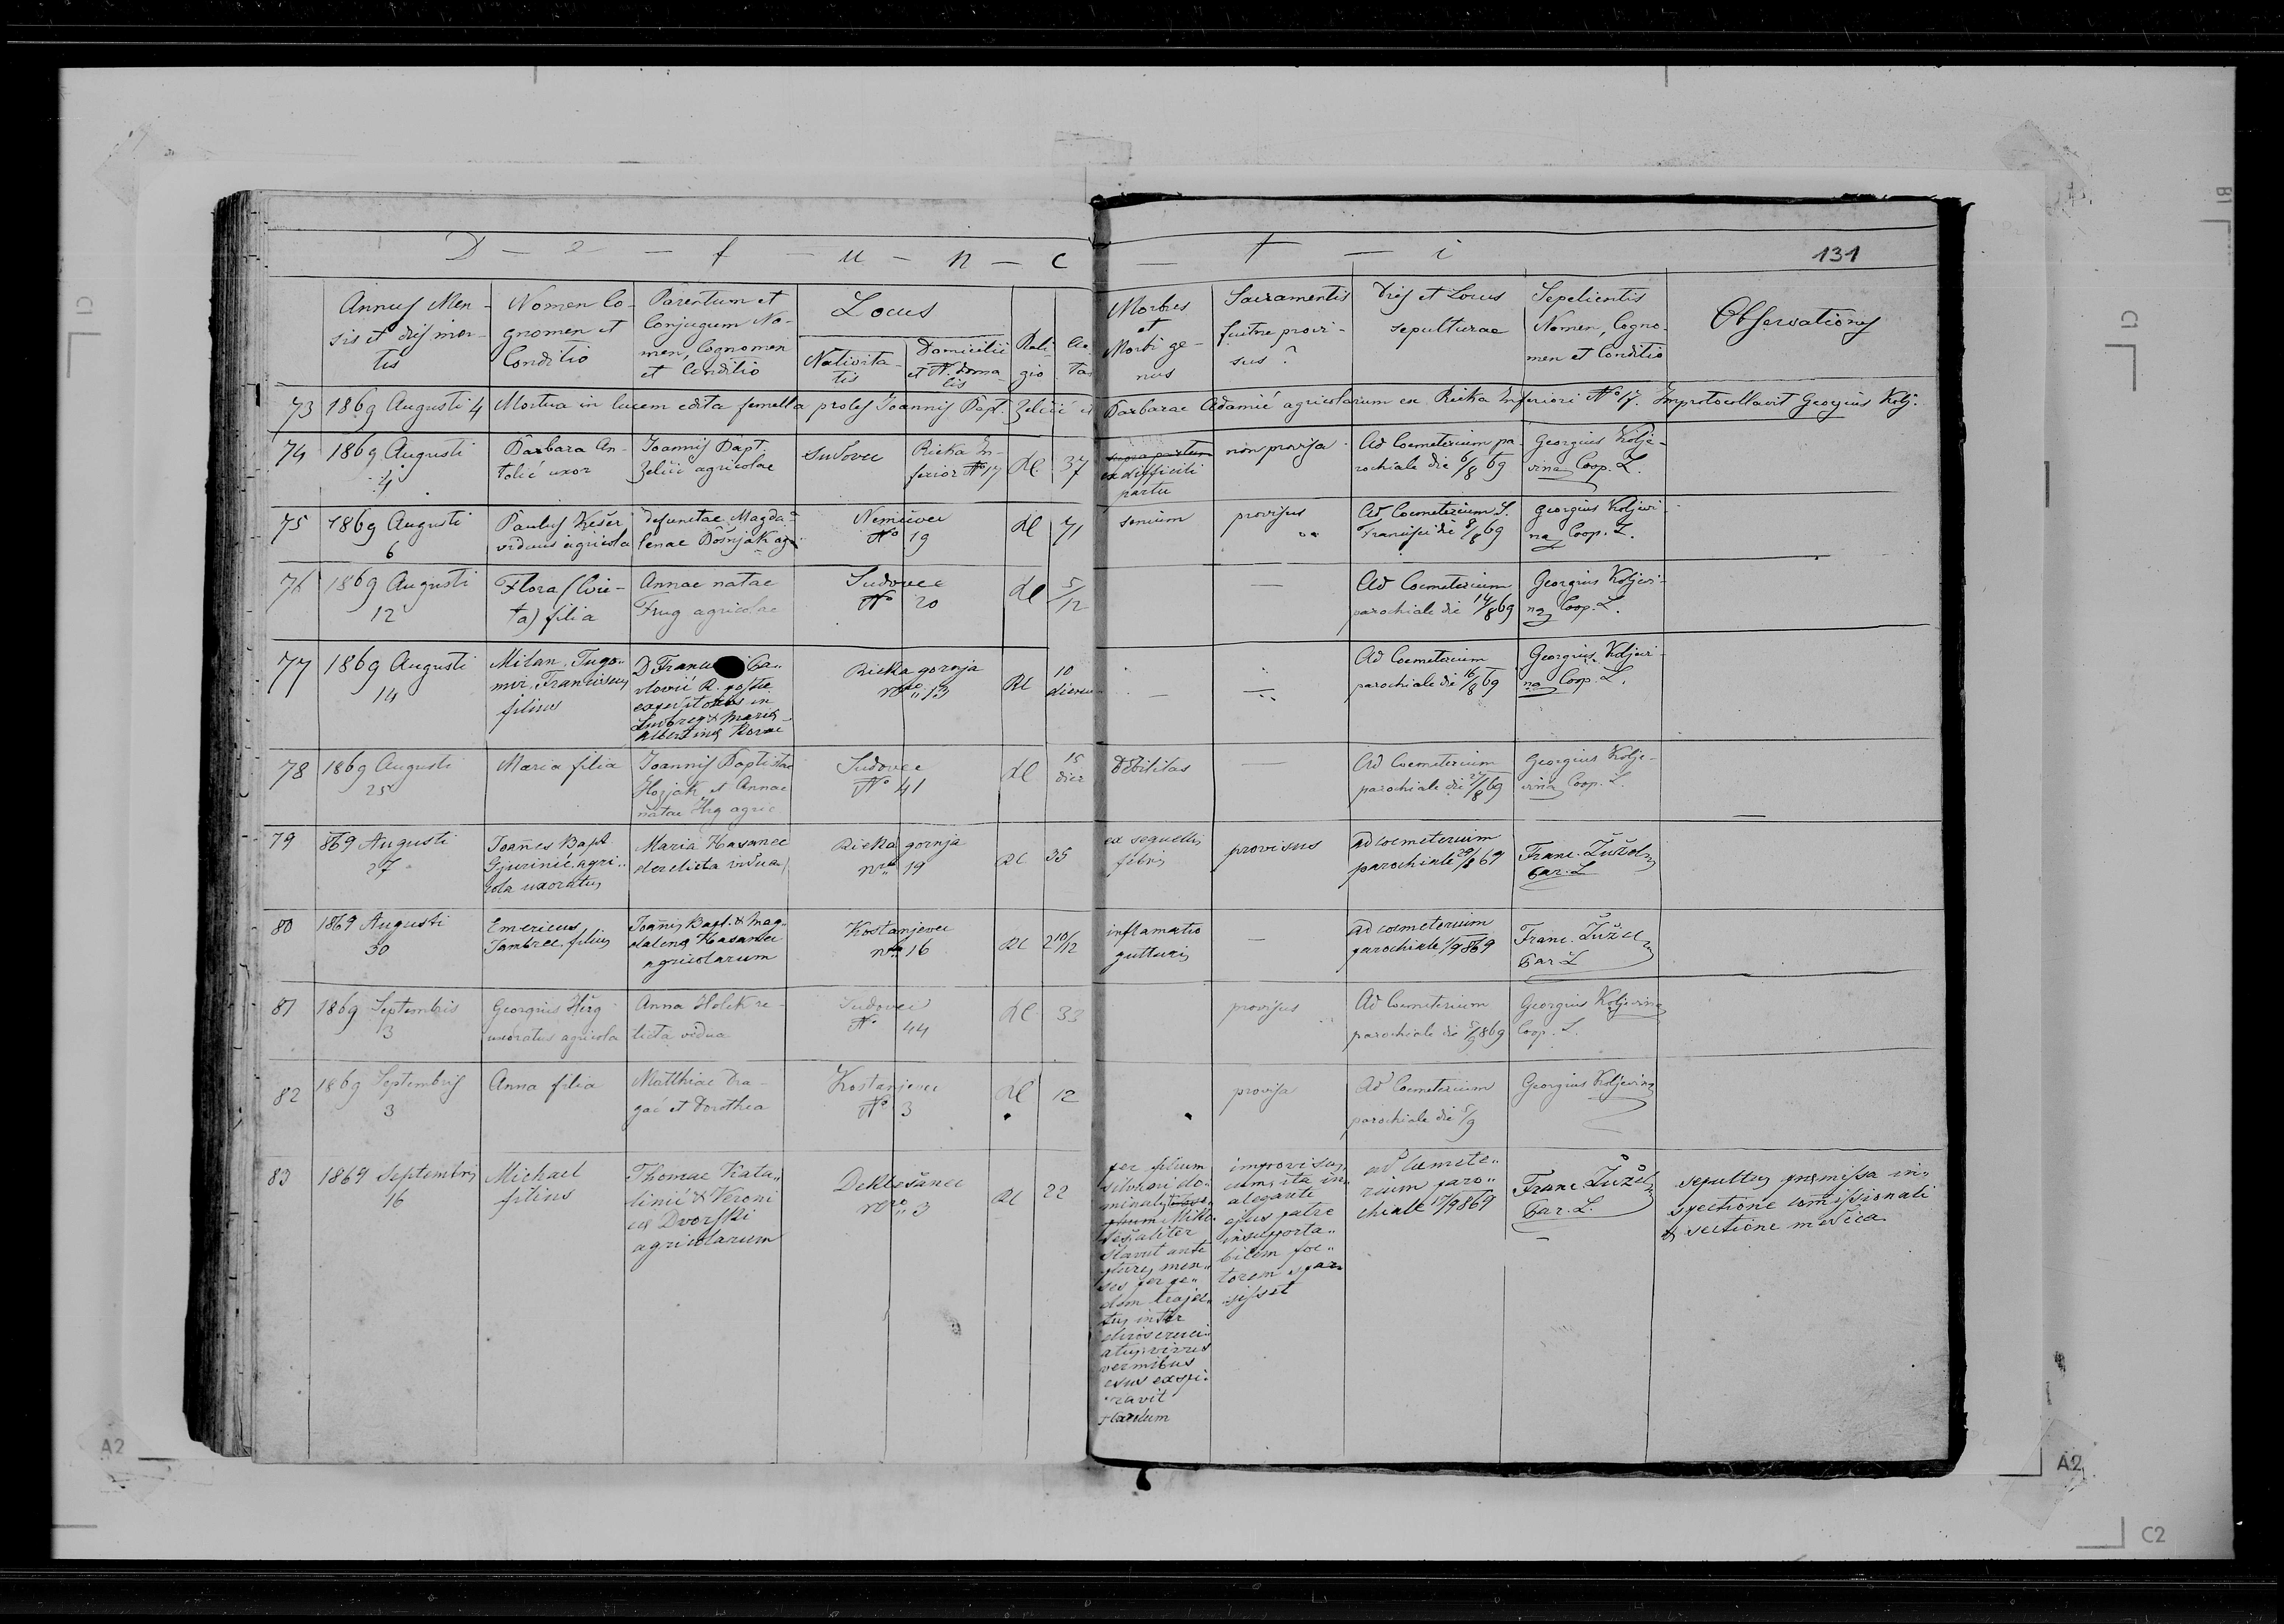 D - e - f - u - n - c - t - i
131
Annus Men-
sis et dies mor-
tis
Nomen Co-
gnomen et
Conditio
Parentum et
Conjugum No-
men, Cognomen
et Conditio
Locus
Nativita-
tis
Domicilii
et N. doma-
lis
Reli-
gio
Ae-
tas
Morbus
et
Morbi ge-
nus
Sacramentis
fuitne provi-
sus?
Dies et Locus
sepulturae
Sepelientis
Nomen, Cogno-
men et Conditio
Observationes
73 1869 Augusti 4 Mortua in lucem edita femella proles Joannis Bapt. Zelić et Barbarae Adamić agricolarum ex Rieka Inferiori No 17. Improtocollavit Georgius Kolj.
74
1869 Augusti
4
Barbara An-
tolić uxor
Joannis Bapt.
Zelić agricolae
Sudovec
Rieka In-
ferior No 17
RC
37
ex difficili
partu
non provisa
Ad Coemeterium pa-
rochiale die 6/8 69
Georgius Kolje-
vina Coop. L.
75
1869 Augusti
6
Paulus Kešer
viduus agricola
defunctae Magda-
lenae Bošnjak agr
Nemčevec
No 19
RC
71
senium
provisus
Ad Coemeterium S.
Francisci die 8/8 69
Georgius Koljevi-
na Coop. L.
76
1869 Augusti
12
Flora (Cvie-
ta) filia
Annae natae
Frug agricolae
Sudovec
No 20
RC
5/12
—
Ad Coemeterium
parochiale die 14/8 69
Georgius Koljevi-
na Coop. L.
77
1869 Augusti
14
Milan, Tugo-
mir, Franciscus
filius
D. Franc
expeditoris in
Ludbreg & Maria
Albertina
Rieka gornja
nro 13
RC
10
dierum
—
—
Ad Coemeterium
parochiale die 16/8 69
Georgius Koljevi-
na Coop. L.
78
1869 Augusti
25
Maria filia
Joannis Baptistae
Hojjak et Annae
natae Hrg agric
Sudovec
No 41
RC
15
dier
Debilitas
—
Ad Coemeterium
parochiale die 27/8 69
Georgius Kolje-
vina Coop. L.
—
79
869 Augusti
27
Joañes Bapt
Gjurinić agri-
cola uxoratus
Maria Hasanec
derelicta vidua
Rieka gornja
nro 19
RC
35
ex sequellis
febris
provisus
ad coemeterium
parochiale 29/8 69
Franc. Žužel
Par. L
80
1869 Augusti
30
Emericus
Jambrec filius
Joañis Bapt. & Mag-
dalena Hasanec
agricolarum
Kostanjevec
nro 16
RC
2 10/12
inflamatio
gutturis
—
ad coemeterium
parochiale 1/9 869
Franc. Žužel
Par. L
81
1869 Septembris
3
Georgius Herg
uxoratus agricola
Anna Holek re-
licta vidua
Sudovec
No 44
RC
33
provisus
Ad Coemeterium
parochiale die 5/9 869
Georgius Koljevina
Coop. L.
82
1869 Septembris
3
Anna filia
Matthiae Dra-
gać et Dorothea
Kostanjevec
No 3
RC
12
provisa
Ad Coemeterium
parochiale die 5/9
Georgius Koljevina
83
1869 Septembris
16
Michael
filius
Thomae Kata-
linić & Veroni
ca Dvorski
agricolarum
Deklešanec
nro 3
RC
22
per
do-
minalis
ante
plures men-
ses per pe-
dem trajec-
tus inter
diros cruci-
atus vivus
vermibus
esus exspi-
ravit
improvisus,
cum, ita in-
alegante
ejus patre
insupporta-
bilem foe-
torem spar-
sisset
ad coemete-
rium paro-
chiale 17/9 869
Franc Žužel
Par. L.
—
sepultus praemissa in-
spectione comissionali
& sectione medica
A2
A2
C1
C1
B1
C2